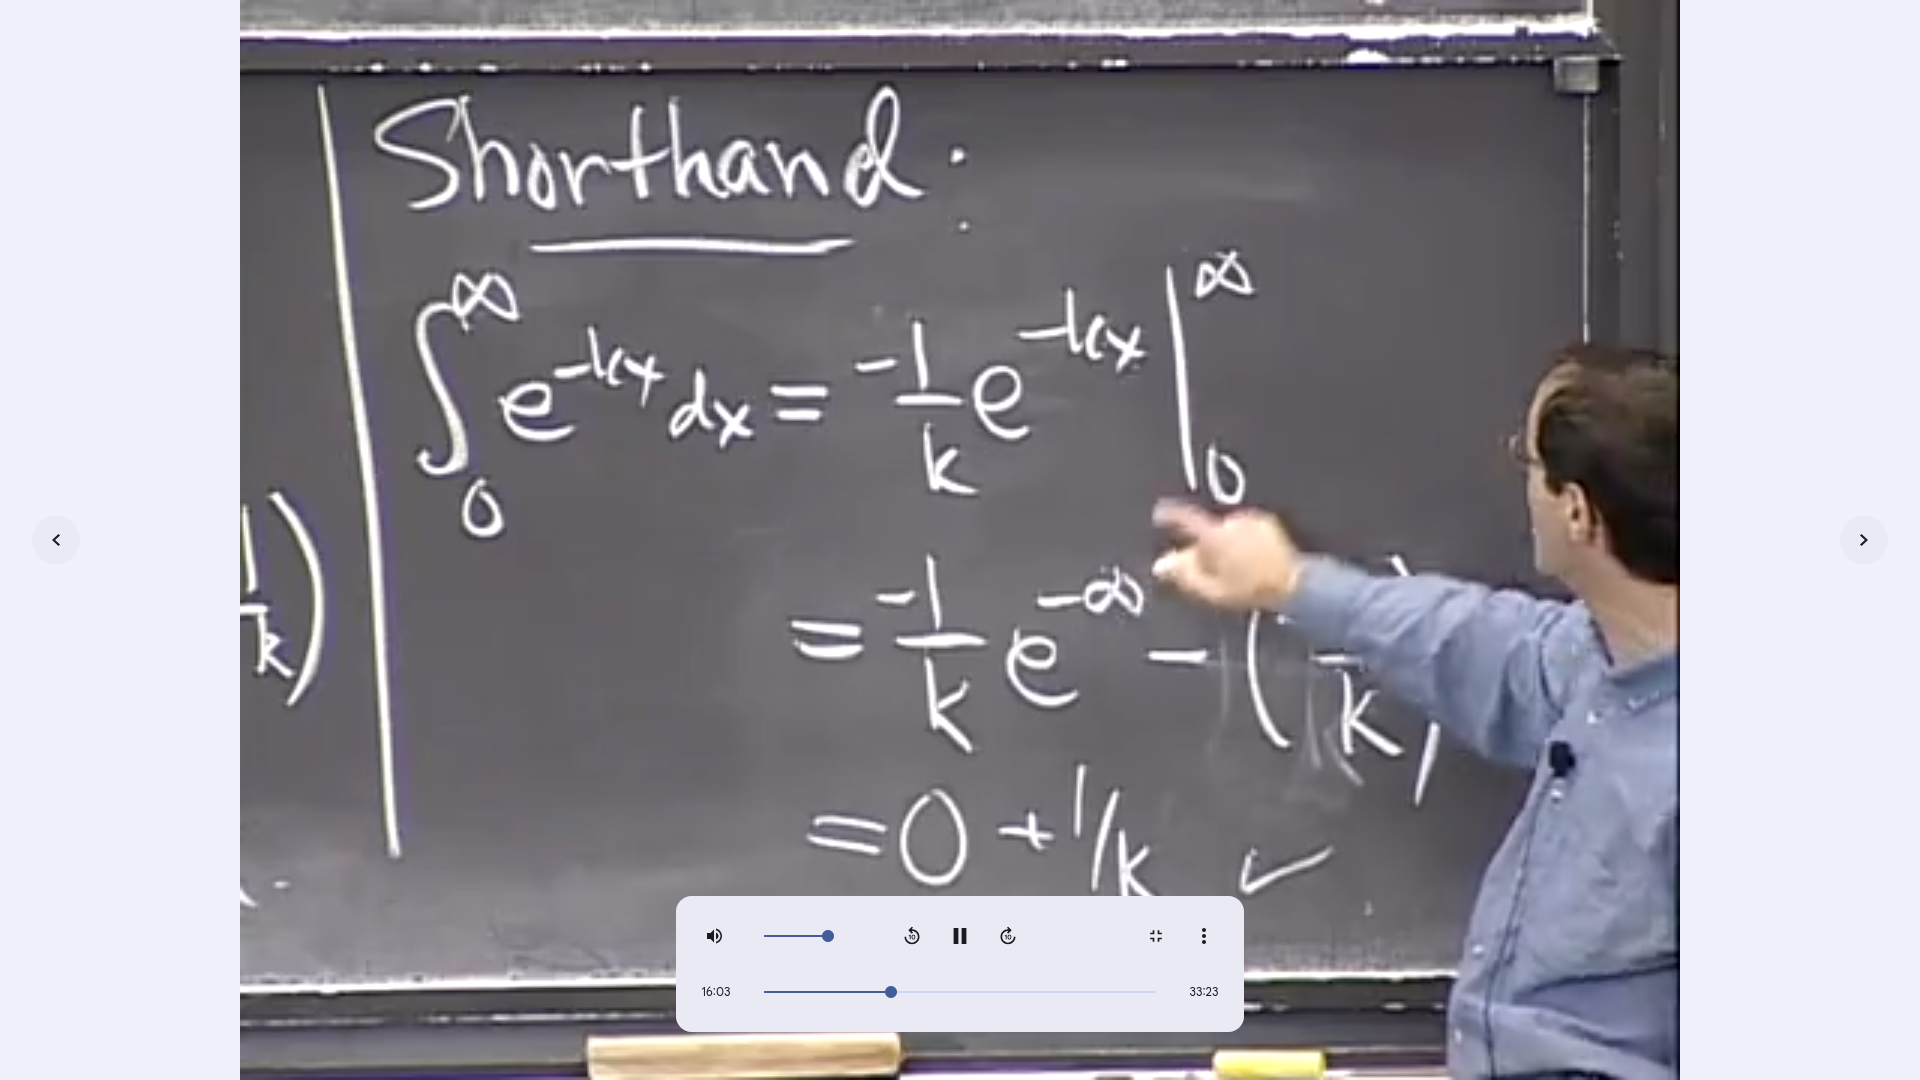 Shorthand:
∫₀^∞ e^{-kx} dx = -1/k e^{-kx} |₀^∞
= -1/k e^{-∞} - (
k)
= 0 + 1/k ✓
1/k)
10
10
16:03
33:23